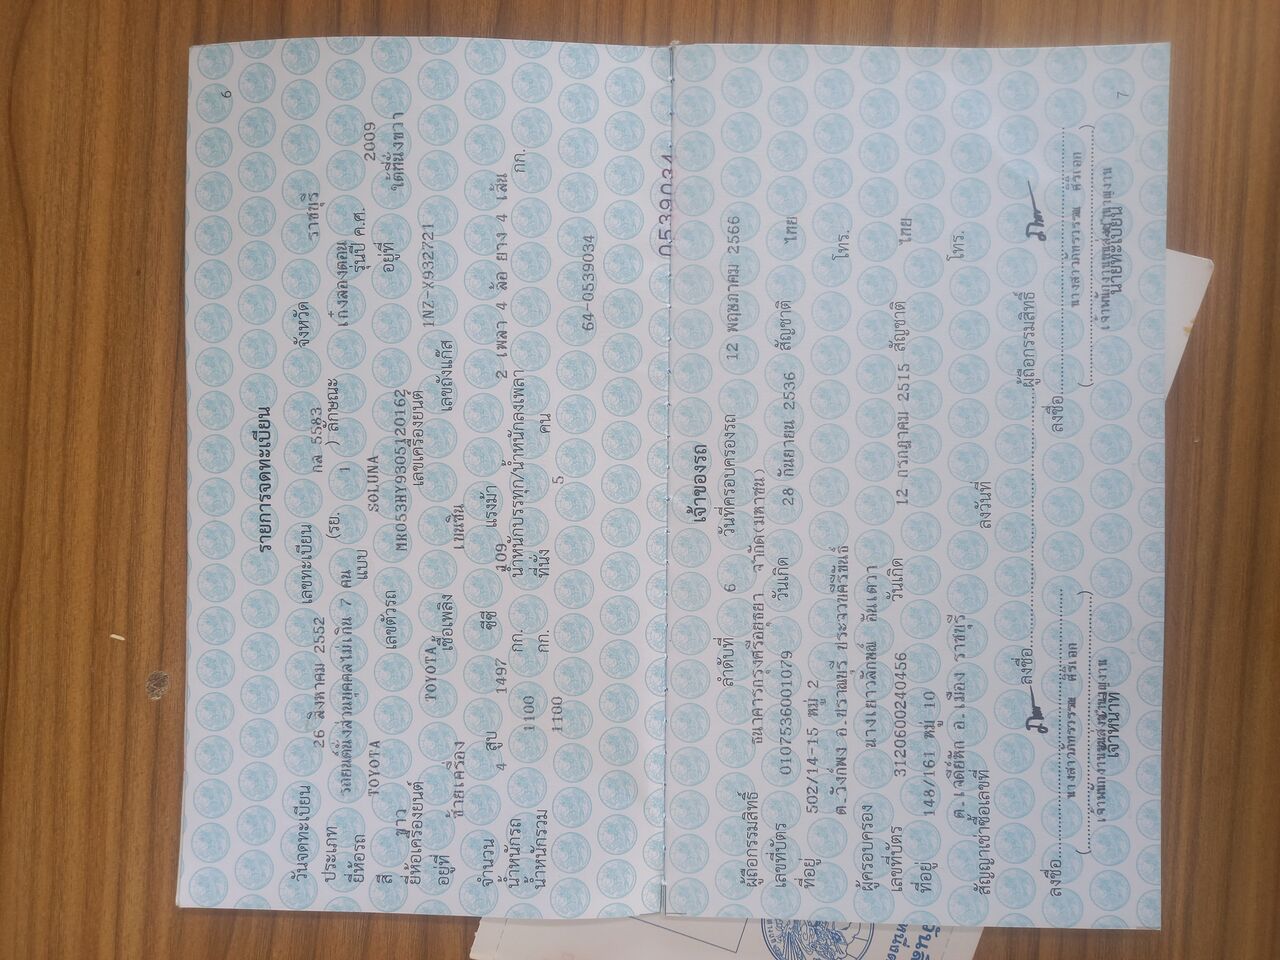 6
รายการจดทะเบียน
วันจดทะเบียน 26 สิงหาคม 2552 เลขทะเบียน กล 5583 จังหวัด ราชบุรี
ประเภท รถยนต์นั่งส่วนบุคคลไม่เกิน 7 คน (รย. 1 ) ลักษณะ เก๋งสองตอน
ยี่ห้อรถ TOYOTA แบบ SOLUNA รุ่นปี ค.ศ. 2009
สี ขาว เลขตัวรถ MR053HY9305120162 อยู่ที่ ใต้ที่นั่งขวา
ยี่ห้อเครื่องยนต์ TOYOTA เลขเครื่องยนต์ 1NZ-X932721
อยู่ที่ ซ้ายเครื่อง เชื้อเพลิง เบนซิน เลขถังแก๊ส
จำนวน 4 สูบ 1497 ซีซี 109 แรงม้า 2 เพลา 4 ล้อ ยาง 4 เส้น
น้ำหนักรถ 1100 กก. น้ำหนักบรรทุก/น้ำหนักลงเพลา กก.
น้ำหนักรวม 1100 กก. ที่นั่ง 5 คน
64-0539034
0539034
เจ้าของรถ
ลำดับที่ 6 วันที่ครอบครองรถ 12 พฤษภาคม 2566
ผู้ถือกรรมสิทธิ์ ธนาคารกรุงศรีอยุธยา จำกัด(มหาชน)
เลขที่บัตร 0107536001079 วันเกิด 28 กันยายน 2536 สัญชาติ ไทย
ที่อยู่ 502/14-15 หมู่ 2 โทร.
ต.วังก์พง อ.ปราณบุรี ประจวบคีรีขันธ์
ผู้ครอบครอง นางเยาวลักษณ์ อันเตวา
เลขที่บัตร 3120600240456 วันเกิด 12 กรกฎาคม 2515 สัญชาติ ไทย
ที่อยู่ 148/161 หมู่ 10 โทร.
ต.เจดีย์หัก อ.เมือง ราชบุรี
สัญญาเช่าซื้อเลขที่ ลงวันที่
ลงชื่อ ผู้ถือกรรมสิทธิ์
ลงชื่อ ลงชื่อ
นางสาวภัทรวรรณ ศิริเอก นางสาวภัทรวรรณ ศิริเอก
เจ้าหน้าที่ นายทะเบียน
7